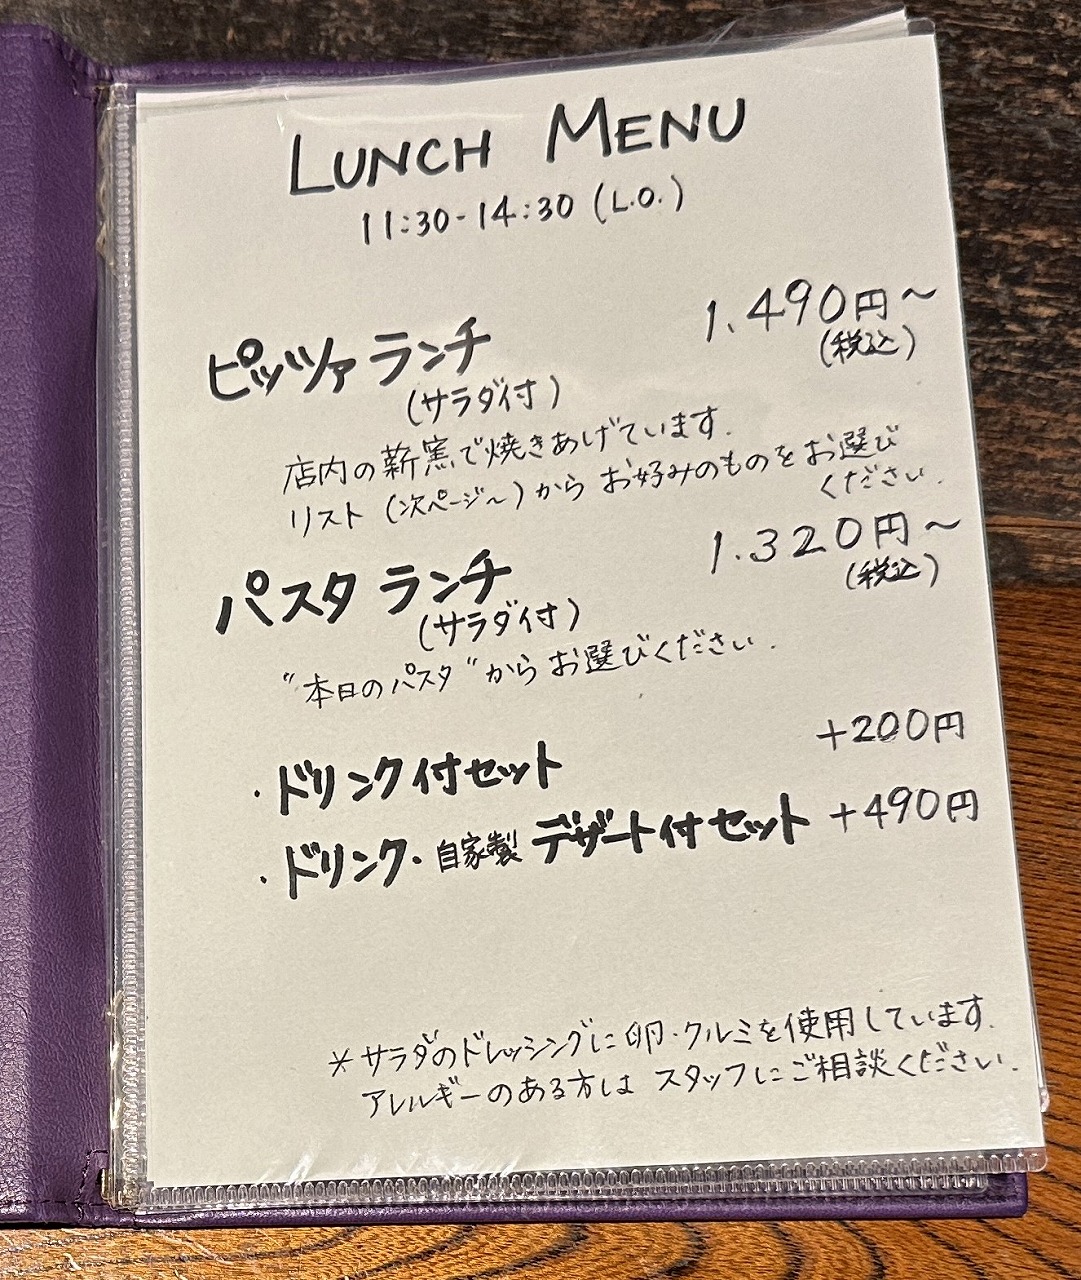 LUNCH MENU
11:30-14:30 (L.O.)
ピッツァ ランチ 1.490円〜
(サラダ付) (税込)
店内の薪窯で焼きあげています.
リスト (次ページ〜) から お好みのものをお選び
ください.
パスタ ランチ 1.320円〜
(サラダ付) (税込)
"本日のパスタ"から お選びください.
・ドリンク付セット +200円
・ドリンク・自家製 デザート付セット +490円
*サラダのドレッシングに 卵・クルミを使用しています.
アレルギーのある方は スタッフにご相談ください.